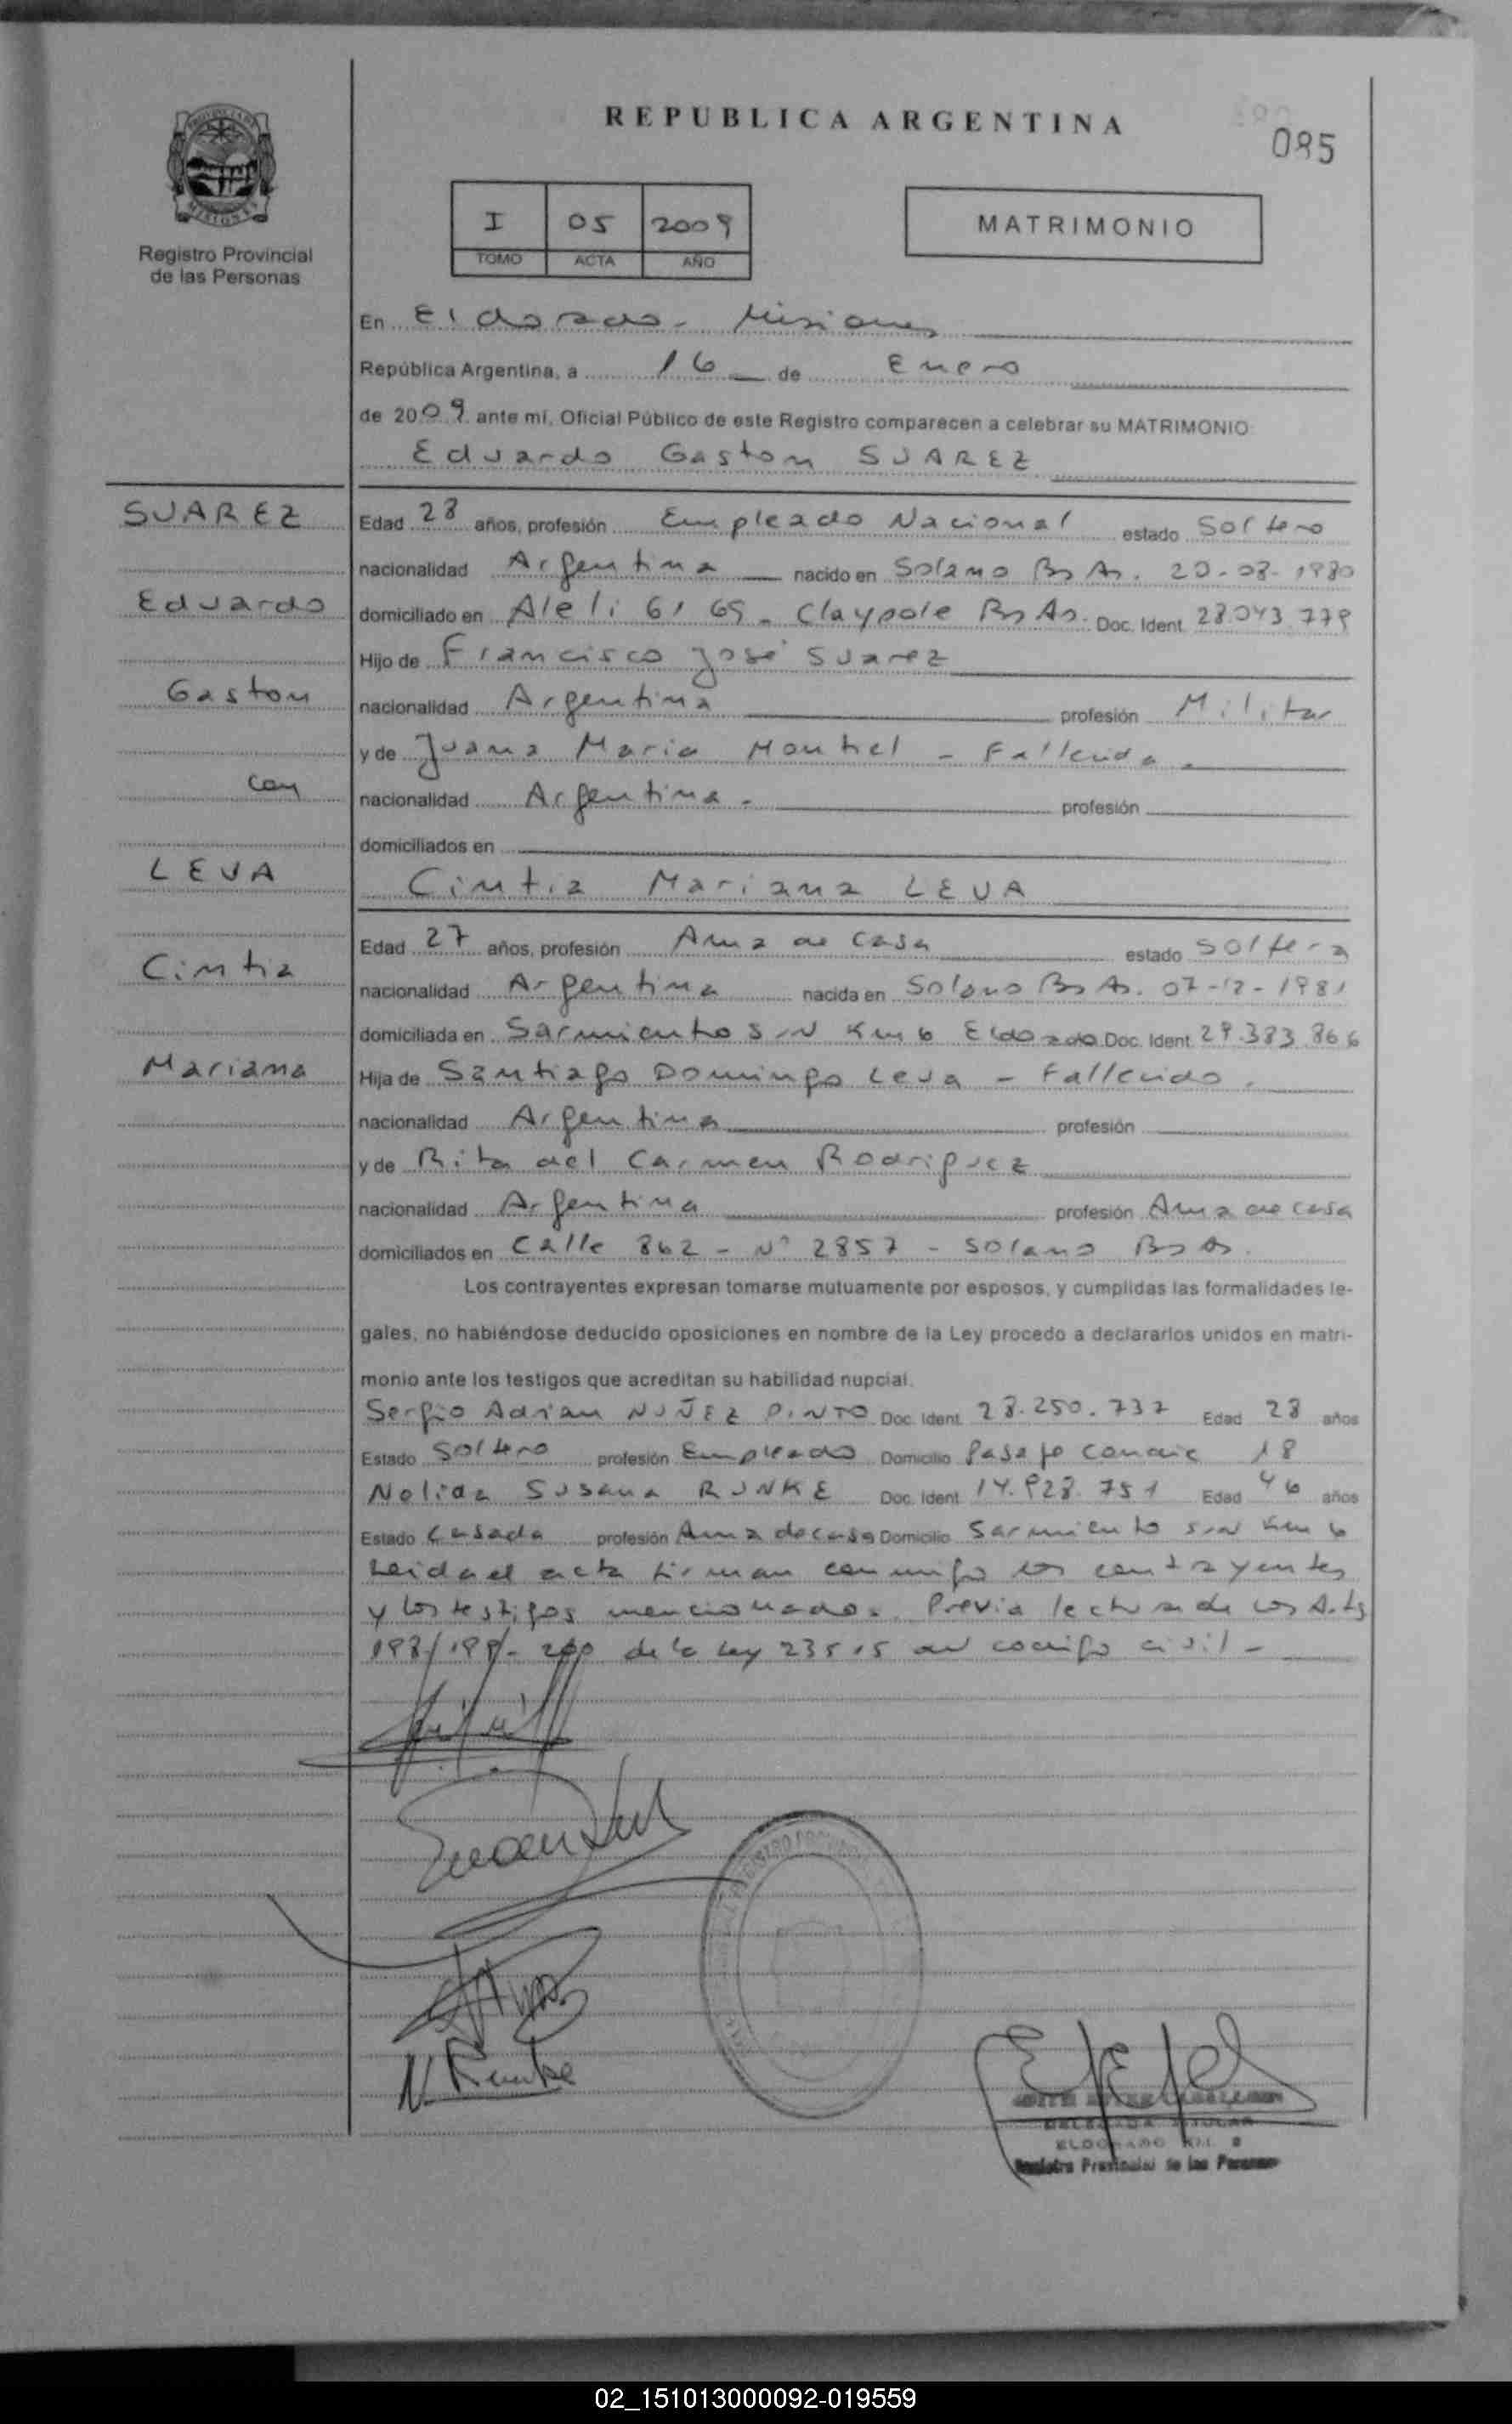 REPUBLICA ARGENTINA
085
Registro Provincial
de las Personas
I 05 2009
TOMO ACTA AÑO
MATRIMONIO
En Eldorado - Misiones
República Argentina, a 16 de Enero
de 2009 ante mí, Oficial Público de este Registro comparecen a celebrar su MATRIMONIO
Eduardo Gaston SUAREZ
SUAREZ
Eduardo
Gaston
con
LEVA
Cintia
Mariana
Edad 28 años, profesión Empleado Nacional estado Soltero
nacionalidad Argentina nacido en Solano Bs As. 20-08-1980
domiciliado en Aleli 6165 - Claypole Bs As. Doc. Ident. 28.043.779
Hijo de Francisco José Suarez
nacionalidad Argentina profesión Militar
y de Juana Maria Montiel - Fallecida.
nacionalidad Argentina - profesión
domiciliados en
Cintia Mariana LEVA
Edad 27 años, profesión Ama de Casa estado Soltera
nacionalidad Argentina nacida en Solano Bs As. 07-12-1981
domiciliada en Sarmiento S/N Km 6 Eldorado Doc. Ident. 29.383.866
Hija de Santiago Domingo Leva - Fallecido.
nacionalidad Argentina profesión
y de Rita del Carmen Rodriguez
nacionalidad Argentina profesión Ama de casa
domiciliados en Calle 862 - N° 2857 - Solano Bs As.
Los contrayentes expresan tomarse mutuamente por esposos, y cumplidas las formalidades le-
gales, no habiéndose deducido oposiciones en nombre de la Ley procedo a declararlos unidos en matri-
monio ante los testigos que acreditan su habilidad nupcial.
Sergio Adrian NUÑEZ PINTO Doc. Ident. 28.250.737 Edad 28 años
Estado Soltero profesión Empleado Domicilio Pasaje 18
Nelida Susana RUNKE Doc. Ident. 14.928.751 Edad 46 años
Estado Casada profesión Ama de casa Domicilio Sarmiento S/N Km 6
Leida el acta firman conmigo los contrayentes
y los testigos mencionados. Previa lectura de los Arts
198/199-200 de la Ley 23515 del codigo civil -
N. Runke
DELEGADA TITULAR
ELDORADO KM.
Registro Provincial de las Personas
02_151013000092-019559